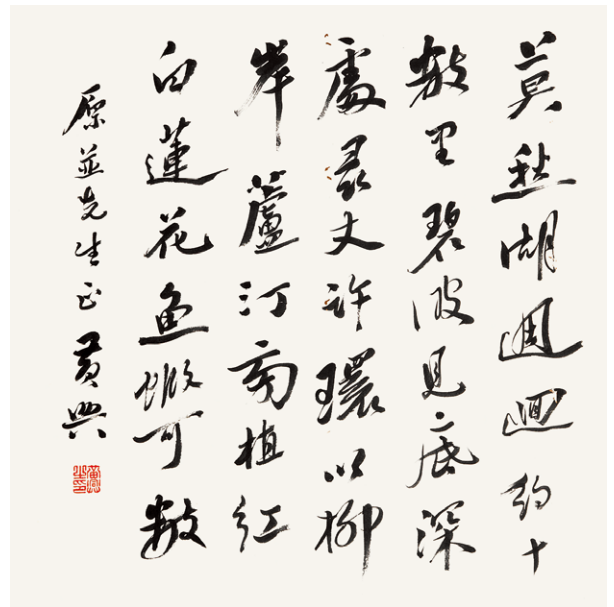 莫愁湖週迴約十
數里碧波見底深
處尋丈許環以柳
岸蘆汀植紅
白蓮花魚蝦可數
並先生正 黃興